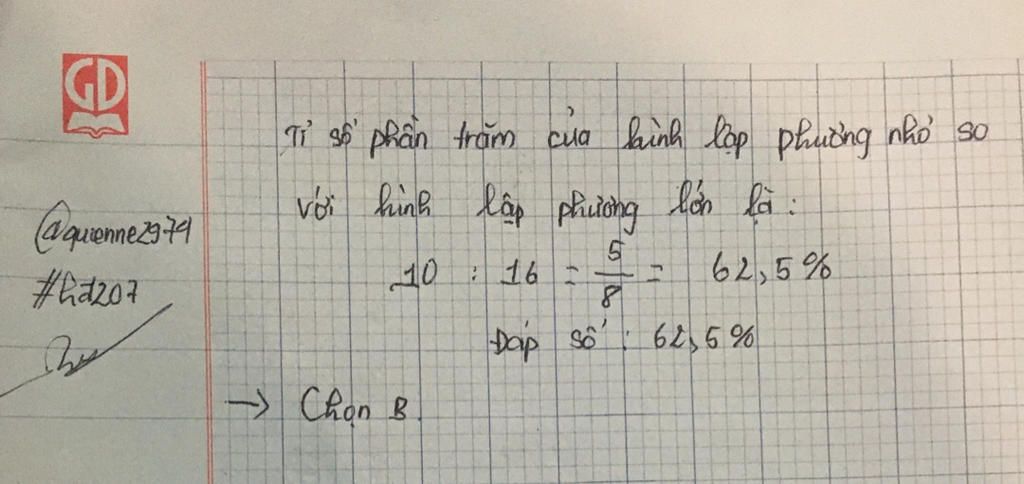 GD
Tỉ số phần trăm của hình lập phương nhỏ so
với hình lập phương lớn là:
10 : 16 = 5/8 = 62,5%
Đáp số: 62,5%
→ Chọn B.
@quenne2974
#hd207